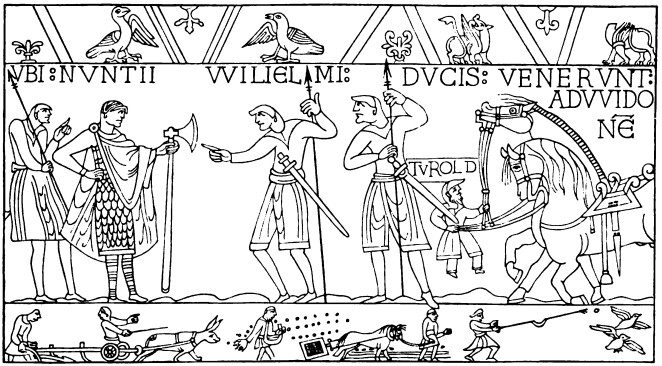 VBI : NVNTII VVILIELMI : DVCIS : VENERVNT :
ADVVIDO
NĒ
TVROLD